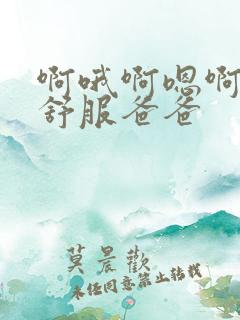 啊哦啊嗯啊
舒服爸爸
莫晨欢
未经同意禁止转载